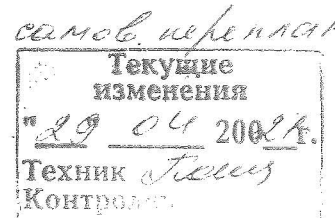 самов. переплан
Текущие
изменения
"29" 04 2002г.
Техник
Контрол